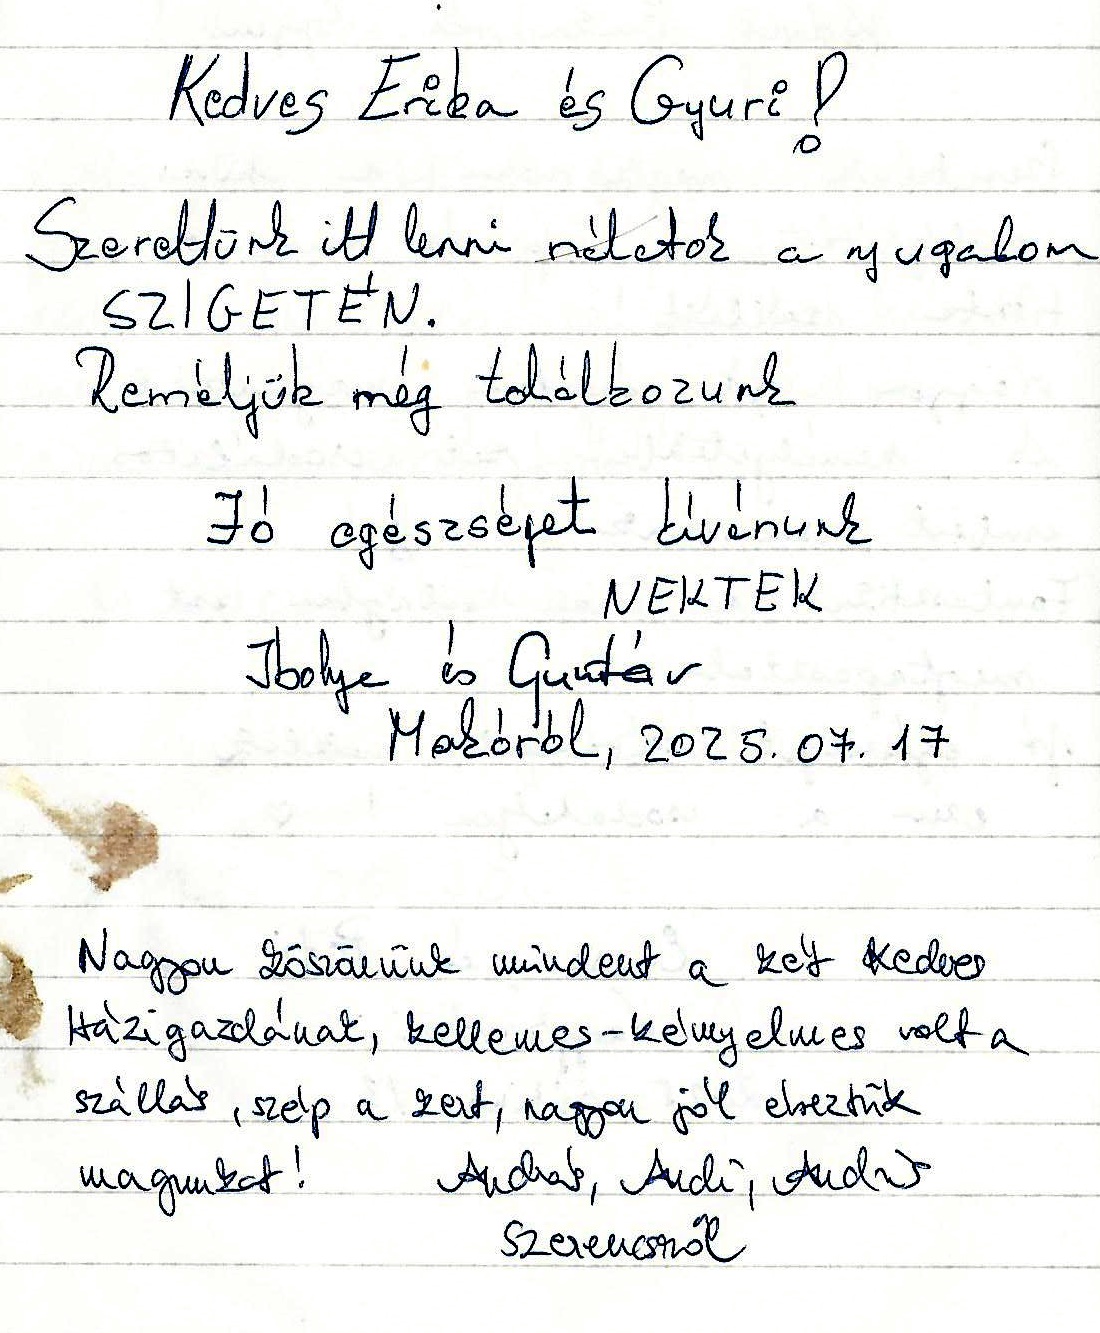 Kedves Erika és Gyuri!
Szerettünk itt lenni nálatok a nyugalom
SZIGETÉN.
Reméljük még találkozunk
Jó egészséget kívánunk
NEKTEK
Ibolya és Gusztáv
Makóról, 2025.07.17
Nagyon köszönünk mindent a két kedves
Házigazdának, kellemes-kényelmes volt a
szállás, szép a kert, nagyon jól éreztük
magunkat! András, Andi, András
Szerencsről